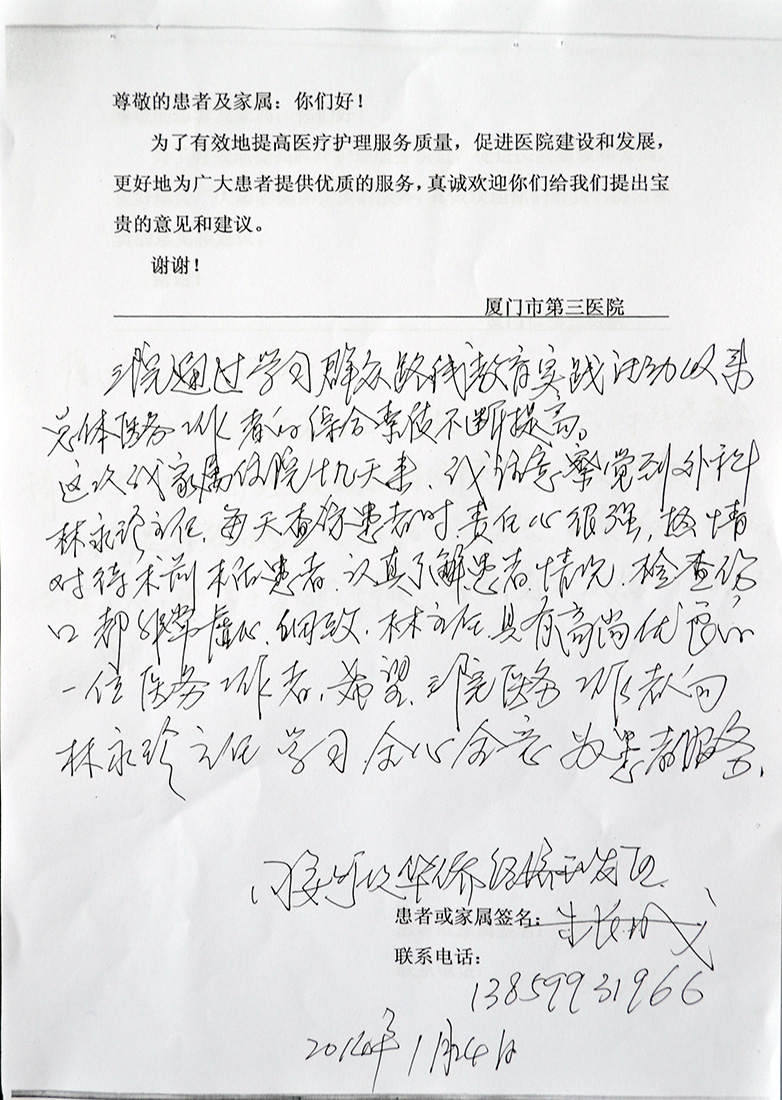 尊敬的患者及家属：你们好！
为了有效地提高医疗护理服务质量，促进医院建设和发展，
更好地为广大患者提供优质的服务，真诚欢迎你们给我们提出宝
贵的意见和建议。
谢谢！
厦门市第三医院
三院通过学习群众路线教育实践活动以来
总体医务工作者的综合素质不断提高。
这次我家属住院十九天来，我注意察觉到外科
林永珍主任，每天查房患者时，责任心很强，热情
对待术前术后患者，认真了解患者情况，检查伤
口都非常虚心，细致，林主任具有高尚优良的
一位医务工作者，希望三院医务工作者向
林永珍主任学习，全心全意为患者服务。
华侨经济开发区
患者或家属签名：
联系电话：
13859931966
2014年1月24日